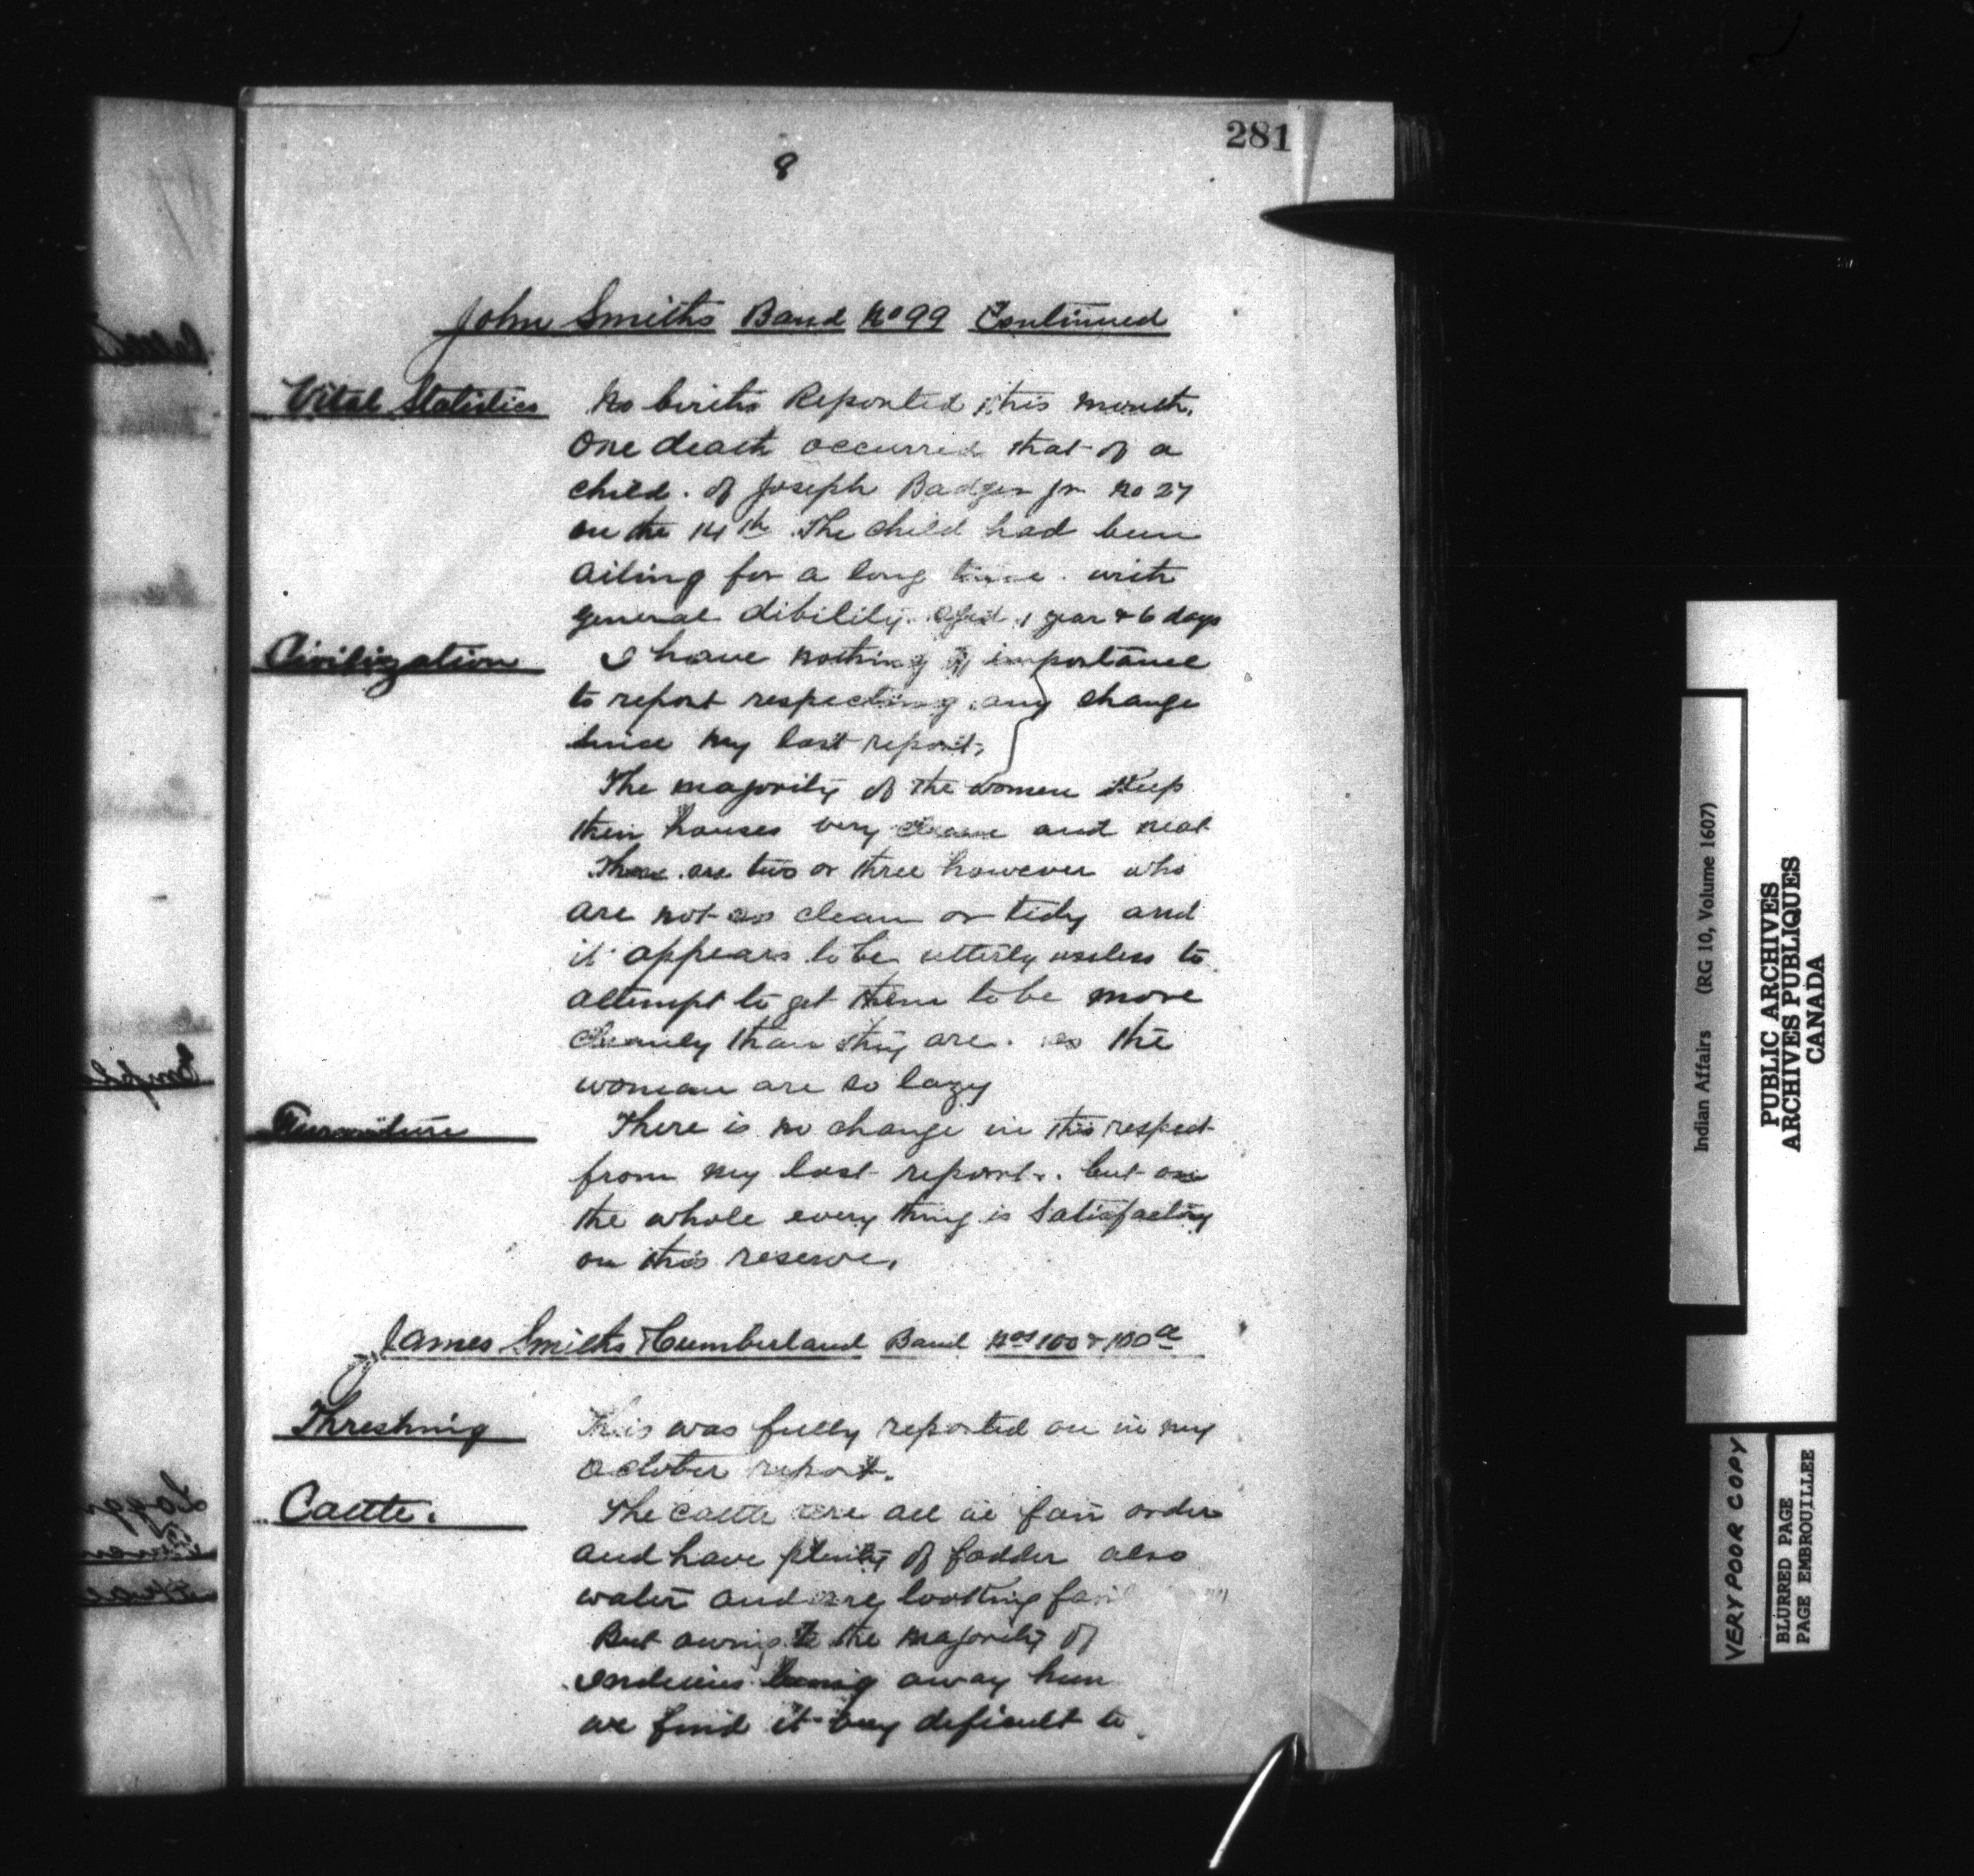 281
8
John Smiths Band No 99 Continued
Vital Statistics
No births Reported this month.
One death occurred that of a
child. of Joseph Badger Jr No 27
on the 14th. The child had been
ailing for a long time. with
general dibility. Aged 1 year & 6 days
Civilization
I have nothing of importance
to report respecting any change
since my last report.
The majority of the women keep
their houses very clean and neat
There are two or three however who
are not so clean or tidy and
it appears to be utterly useless to
attempt to get them to be more
cleanly than they are. as the
woman are so lazy
There is no change in this respect
from my last report. but on
the whole every thing is satisfactory
on this reserve.
James Smiths & Cumberland Band Nos 100 & 100a
Threshing
This was fully reported on in my
October report.
Cattle.
The cattle are all in fair order
and have plenty of fodder also
water and are looking
But owing to the majority of
Indians being away
we find it very deficult to
Indian Affairs (RG 10, Volume 1607)
PUBLIC ARCHIVES
ARCHIVES PUBLIQUES
CANADA
VERY POOR COPY
BLURRED PAGE
PAGE EMBROUILLEE